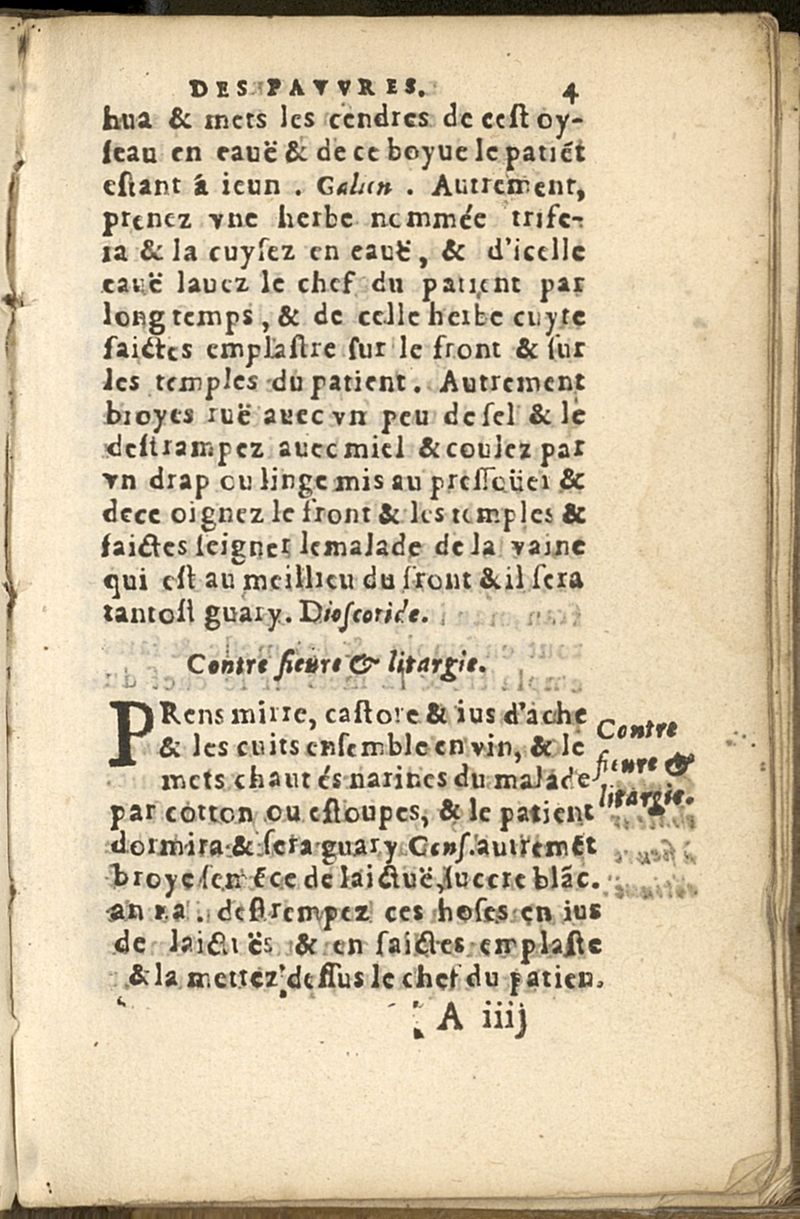 DES PAVVRES. 4
hua & mets les cendres de cest oy-
seau en eauë & de ce boyue le patiēt
estant á ieun . Galien . Autrement,
prenez vne herbe nommée trife-
ra & la cuysez en eauë, & d'icelle
eauë lauez le chef du patient par
long temps, & de celle herbe cuyte
faictes emplastre sur le front & sur
les temples du patient. Autrement
broyes ruë auec vn peu de sel & le
destrampez auec miel & coulez par
vn drap ou linge mis au pressoüer &
de ce oignez le front & les temples &
faictes seigner le malade de la vaine
qui est au meillieu du front & il sera
tantost guary. Dioscoride.
Contre fieure & litargie.
PRens mirre, castore & ius d'ache
& les cuits ensemble en vin, & le
mets chaut és narines du malade
par cotton ou estoupes, & le patient
dormira & sera guary Gens. autremēt
broye semēce de laictuë, succre blāc.
an ʒ a. destrempez ces hoses en ius
de laictuës & en faictes emplaste
& la mettez dessus le chef du patien.
A iiij
Contre
fieure &
litargie.